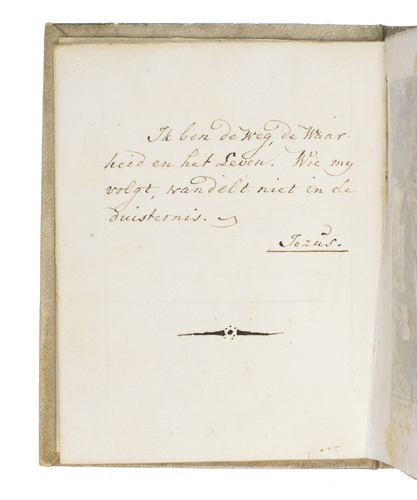 Ik ben de weg, de Waar-
heid en het Leven. Wie my
volgt, wandelt niet in de
duisternis.
Jezus.